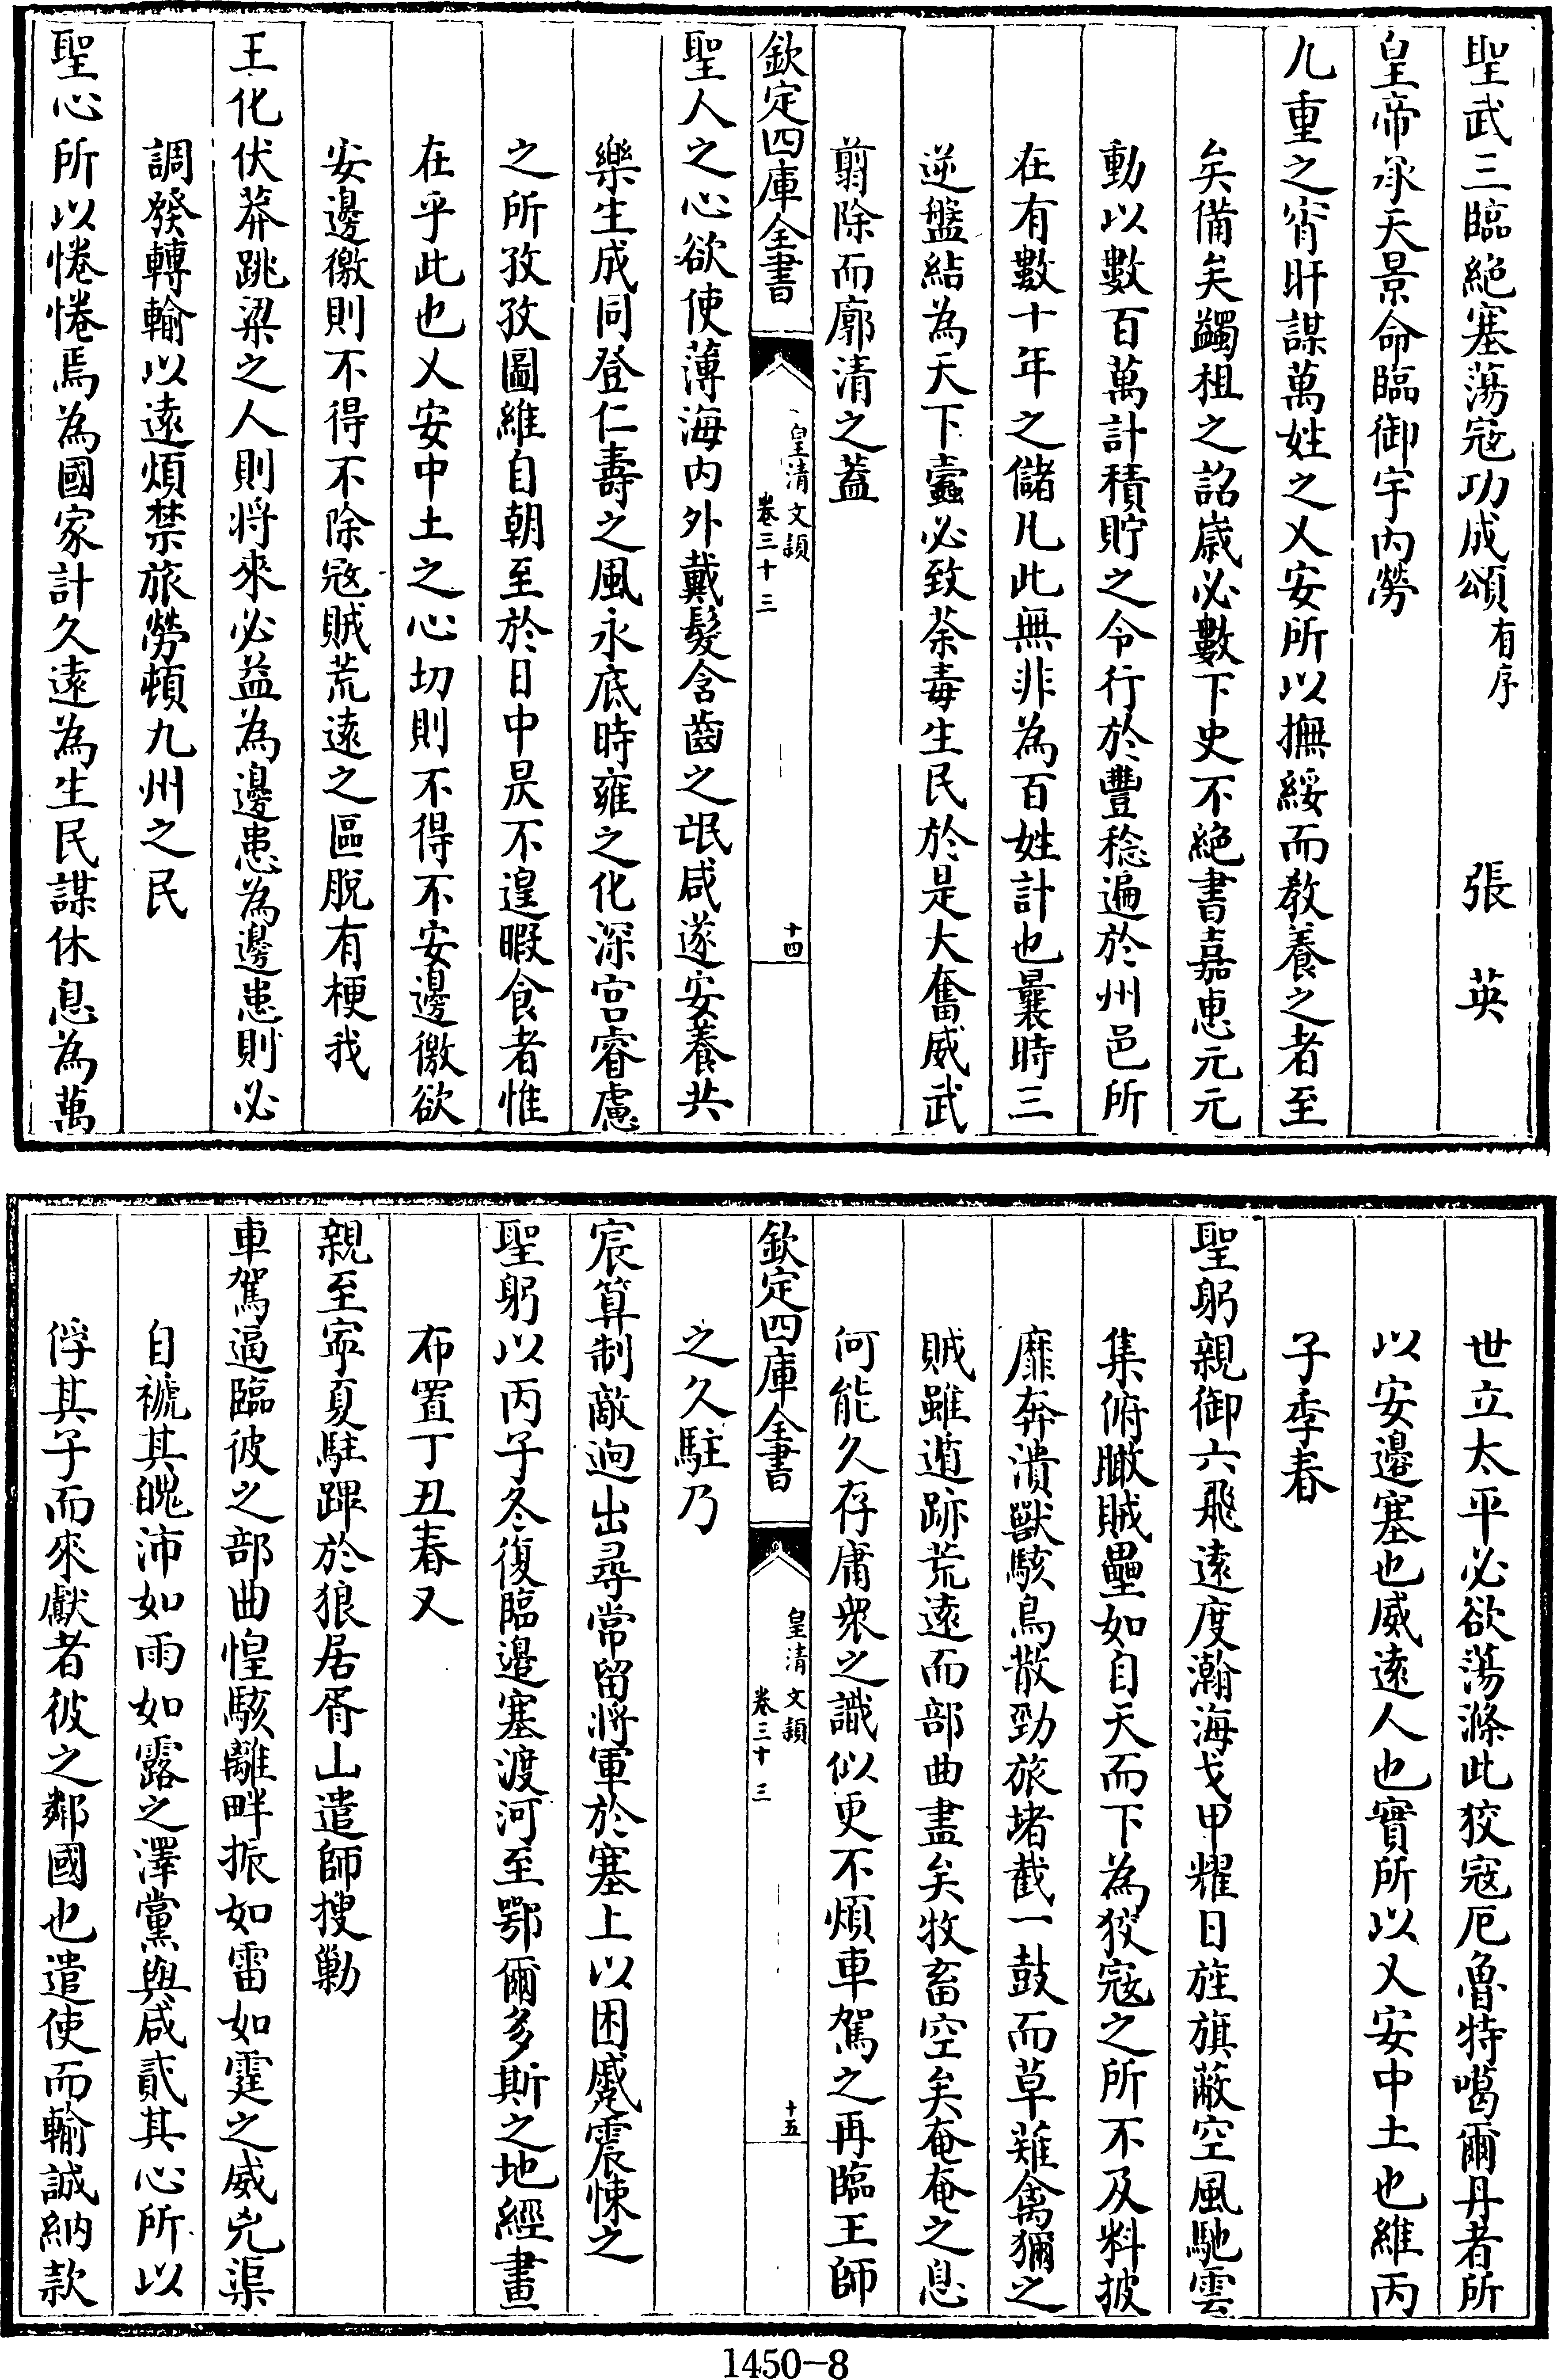 聖武三臨絕塞蕩寇功成頌有序 張英
皇帝承天景命臨御宇內勞
九重之宵旰謀萬姓之乂安所以撫綏而教養之者至
矣備矣蠲租之詔歲必數下史不絕書嘉惠元元
動以數百萬計積貯之令行於豐稔遍於州邑所
在有數十年之儲凡此無非為百姓計也曩時三
逆盤結為天下蠹必致荼毒生民於是大奮威武
翦除而廓清之蓋
欽定四庫全書 皇清文穎 卷三十三 十四
聖人之心欲使薄海內外戴髮含齒之氓咸遂安養共
樂生成同登仁壽之風永底時雍之化深宮睿慮
之所孜孜圖維自朝至於日中昃不遑暇食者惟
在乎此也乂安中土之心切則不得不安邊徼欲
安邊徼則不得不除寇賊荒遠之區脫有梗我
王化伏莽跳梁之人則將來必益為邊患為邊患則必
調發轉輸以遠煩禁旅勞頓九州之民
聖心所以惓惓焉為國家計久遠為生民謀休息為萬
世立太平必欲蕩滌此狡寇厄魯特噶爾丹者所
以安邊塞也威遠人也實所以乂安中土也維丙
子季春
聖躬親御六飛遠度瀚海戈甲耀日旌旗蔽空風馳雲
集俯瞰賊壘如自天而下為狡寇之所不及料披
靡奔潰獸駭鳥散勁旅堵截一鼓而草薙禽獮之
賊雖遁跡荒遠而部曲盡矣牧畜空矣奄奄之息
何能久存庸衆之識似更不煩車駕之再臨王師
欽定四庫全書 皇清文穎 卷三十三 十五
之久駐乃
宸算制敵迥出尋常留將軍於塞上以困蹙震悚之
聖躬以丙子冬復臨邊塞渡河至鄂爾多斯之地經畫
布置丁丑春又
親至寧夏駐蹕於狼居胥山遣師搜勦
車駕逼臨彼之部曲惶駭離畔振如雷如霆之威兇渠
自褫其魄沛如雨如露之澤黨與咸貳其心所以
俘其子而來獻者彼之鄰國也遣使而輸誠納款
1450-8